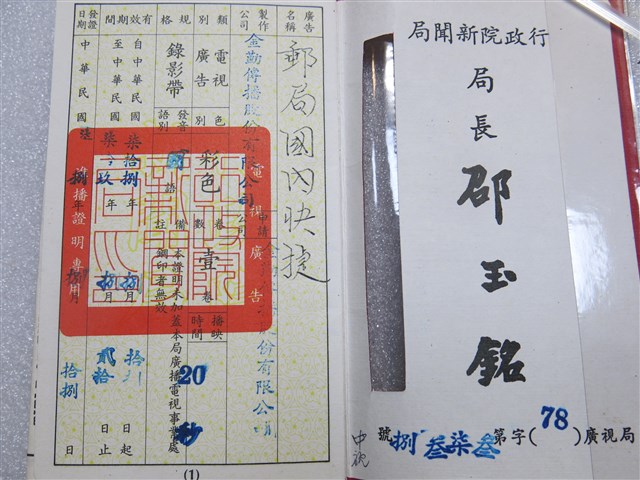 行政院新聞局
局長 邵玉銘
局視廣(78)字第叁柒叁捌號
中視
廣告名稱 郵局國內快捷
製作公司 金勤傳播股份有限公司 申請公司 股份有限公司
類別 電視廣告 色別 彩色 卷數 壹卷 播映時間 20秒
規格 錄影帶 發音語別 國語 備註 本證明未加蓋本局廣播電視事業處鋼印者無效
有效期間 自中華民國柒拾捌年捌月拾 日起
至中華民國柒 玖年捌月貳拾 日止
發證日期 中華民國 捌年 捌月拾捌日
電視廣告
播證明專用
(1)